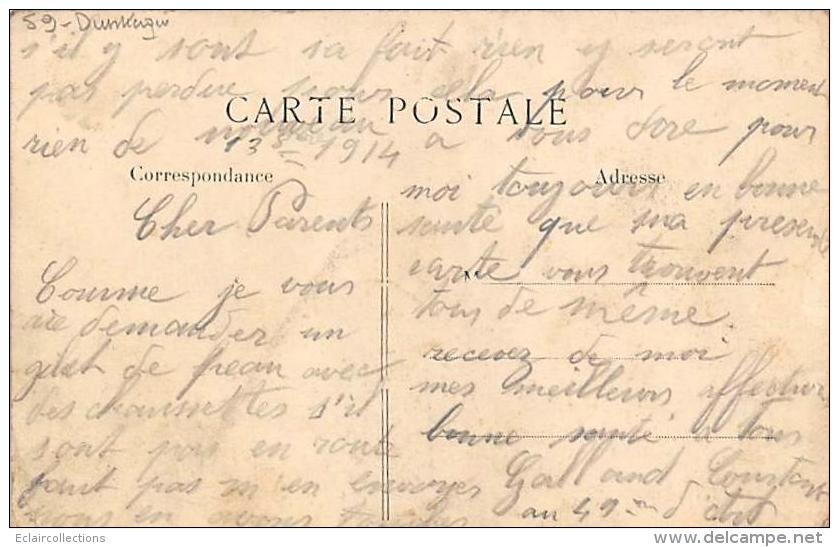 59 - Dunkerque
s'il y sont sa fait rien y seront
pas perdue pour cella pour le moment
CARTE POSTALE
rien de nouveau a vous dire pour
13 1914
Correspondance
Adresse
Cher Parents
Comme je vous
ai demander un
gilet de peau avec
des chaussettes s'il
sont pas en route
faut pas m'en envoyer
nous en avons
moi toujours en bonne
santé que ma presente
carte vous trouvent
tous de même.
recevez de moi
mes meilleurs affection
bonne santé a tous
Galland Constant
au 49
Eclaircollections
www.delcampe.net